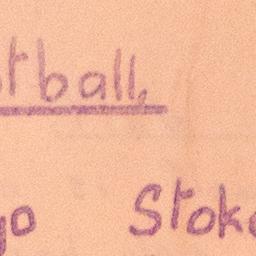 otball,
go Stoke